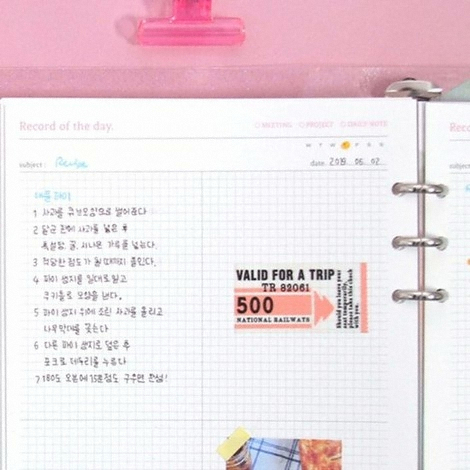 Record of the day.
MEETING PROJECT DAILY NOTE
M T W T F S S
subject : Recipe
date. 2019. 06. 02
애플 파이
1 사과를 큐브모양으로 썰어준다
2 달군 팬에 사과를 넣은 후
흑설탕, 꿀, 시나몬 가루를 넣는다.
3 적당한 점도가 될때까지 졸인다.
4 파이 생지를 밀대로 밀고
쿠키틀로 모양을 낸다.
5 파이 생지 위에 조린 사과를 올리고
6 다른 파이 생지로 덮은 후
포크로 테두리를 누른다
7 180도 오븐에 15분정도 구우면 완성!
VALID FOR A TRIP
TR 82061
500
NATIONAL RAILWAYS
Should you leave your
seat temporarily,
please take this check
with you.
Rec